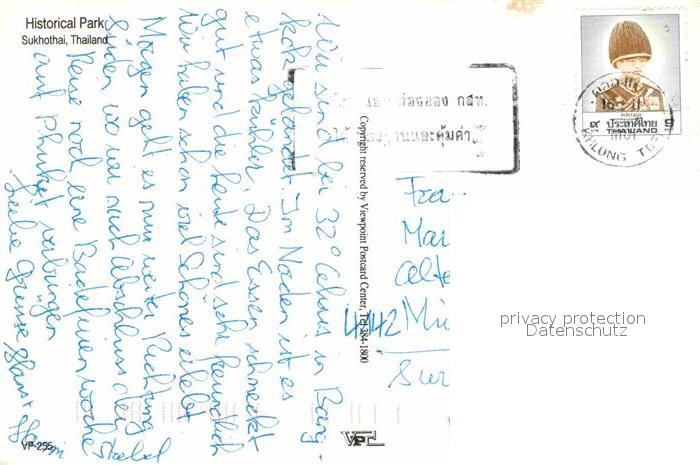 Historical Park
Sukhothai, Thailand
Wir sind bei 32° Celsius in Bang-
kok gelandet. Im Norden ist es
etwas kühler. Das Essen schmeckt
gut und die Leute sind sehr freundlich
Wir haben schon viel Schönes erlebt
Morgen geht es nun weiter Richtung
Süden wo wir nach Abschluss der
Reise noch eine Badeferienwoche
auf Phuket verbringen
Liebe Grüsse
VP-255
Copyright reserved by Viewpoint Postcard Center, Tel 384-1800
VPC
กสท.
และคุ้มค่า
ประเทศไทย
POSTAGE
THAILAND
KHLONG
Fra
Mar
4142
Sur
privacy protection
Datenschutz